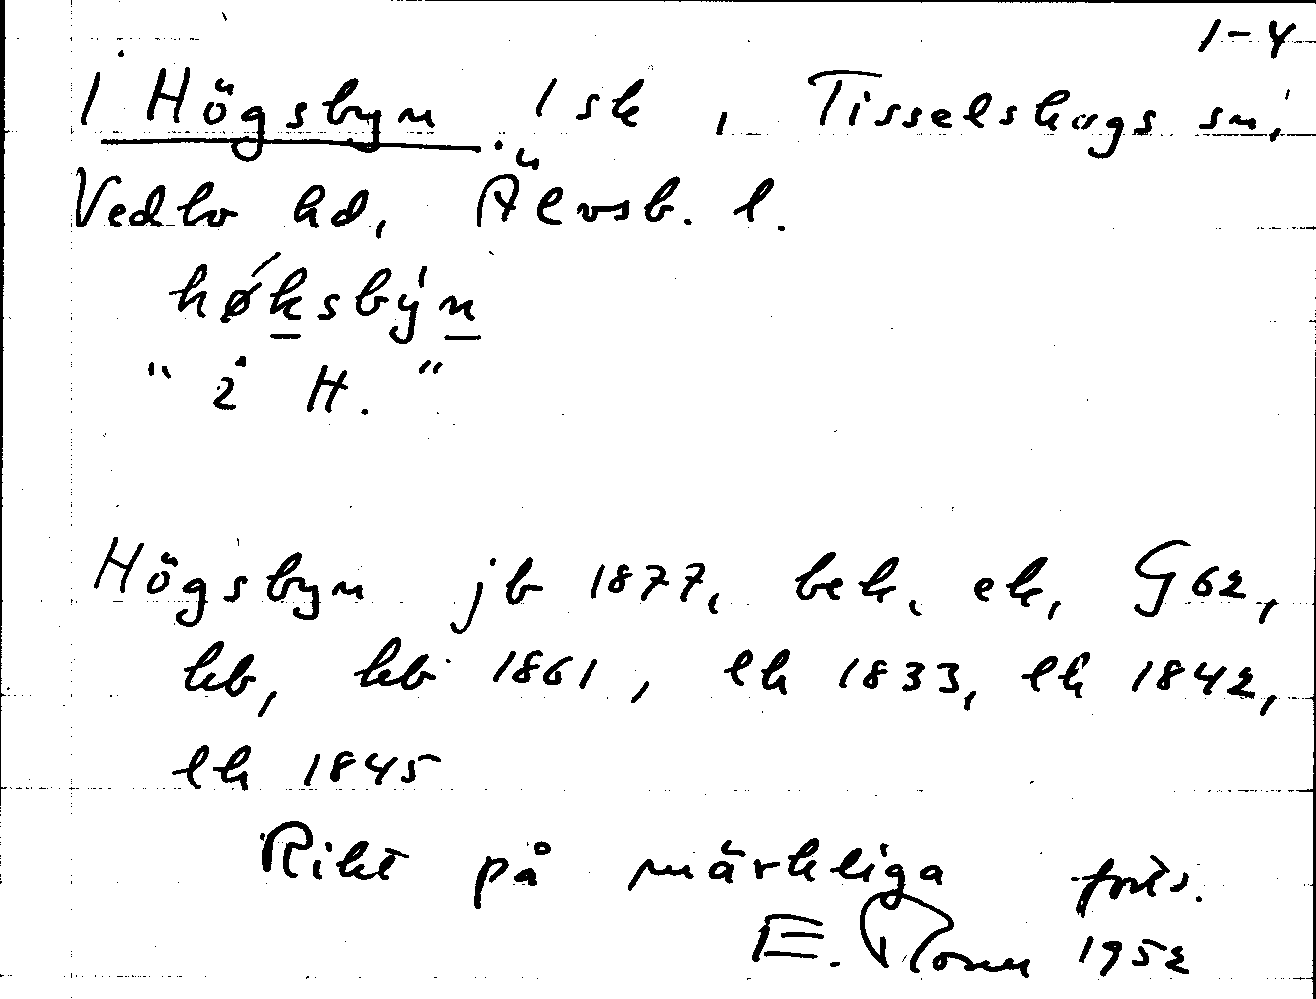 1-4
1 Högsbyn 1 sk, Tisselskogs sn,
Vedbo hd, Älvsb. l.
hǿksbýn
"i H."
Högsbyn jb 1877, bek, ek, G62,
kb, hb 1861, lh 1833, lh 1842,
lh 1845
Rikt på märkliga forts.
E. 1952